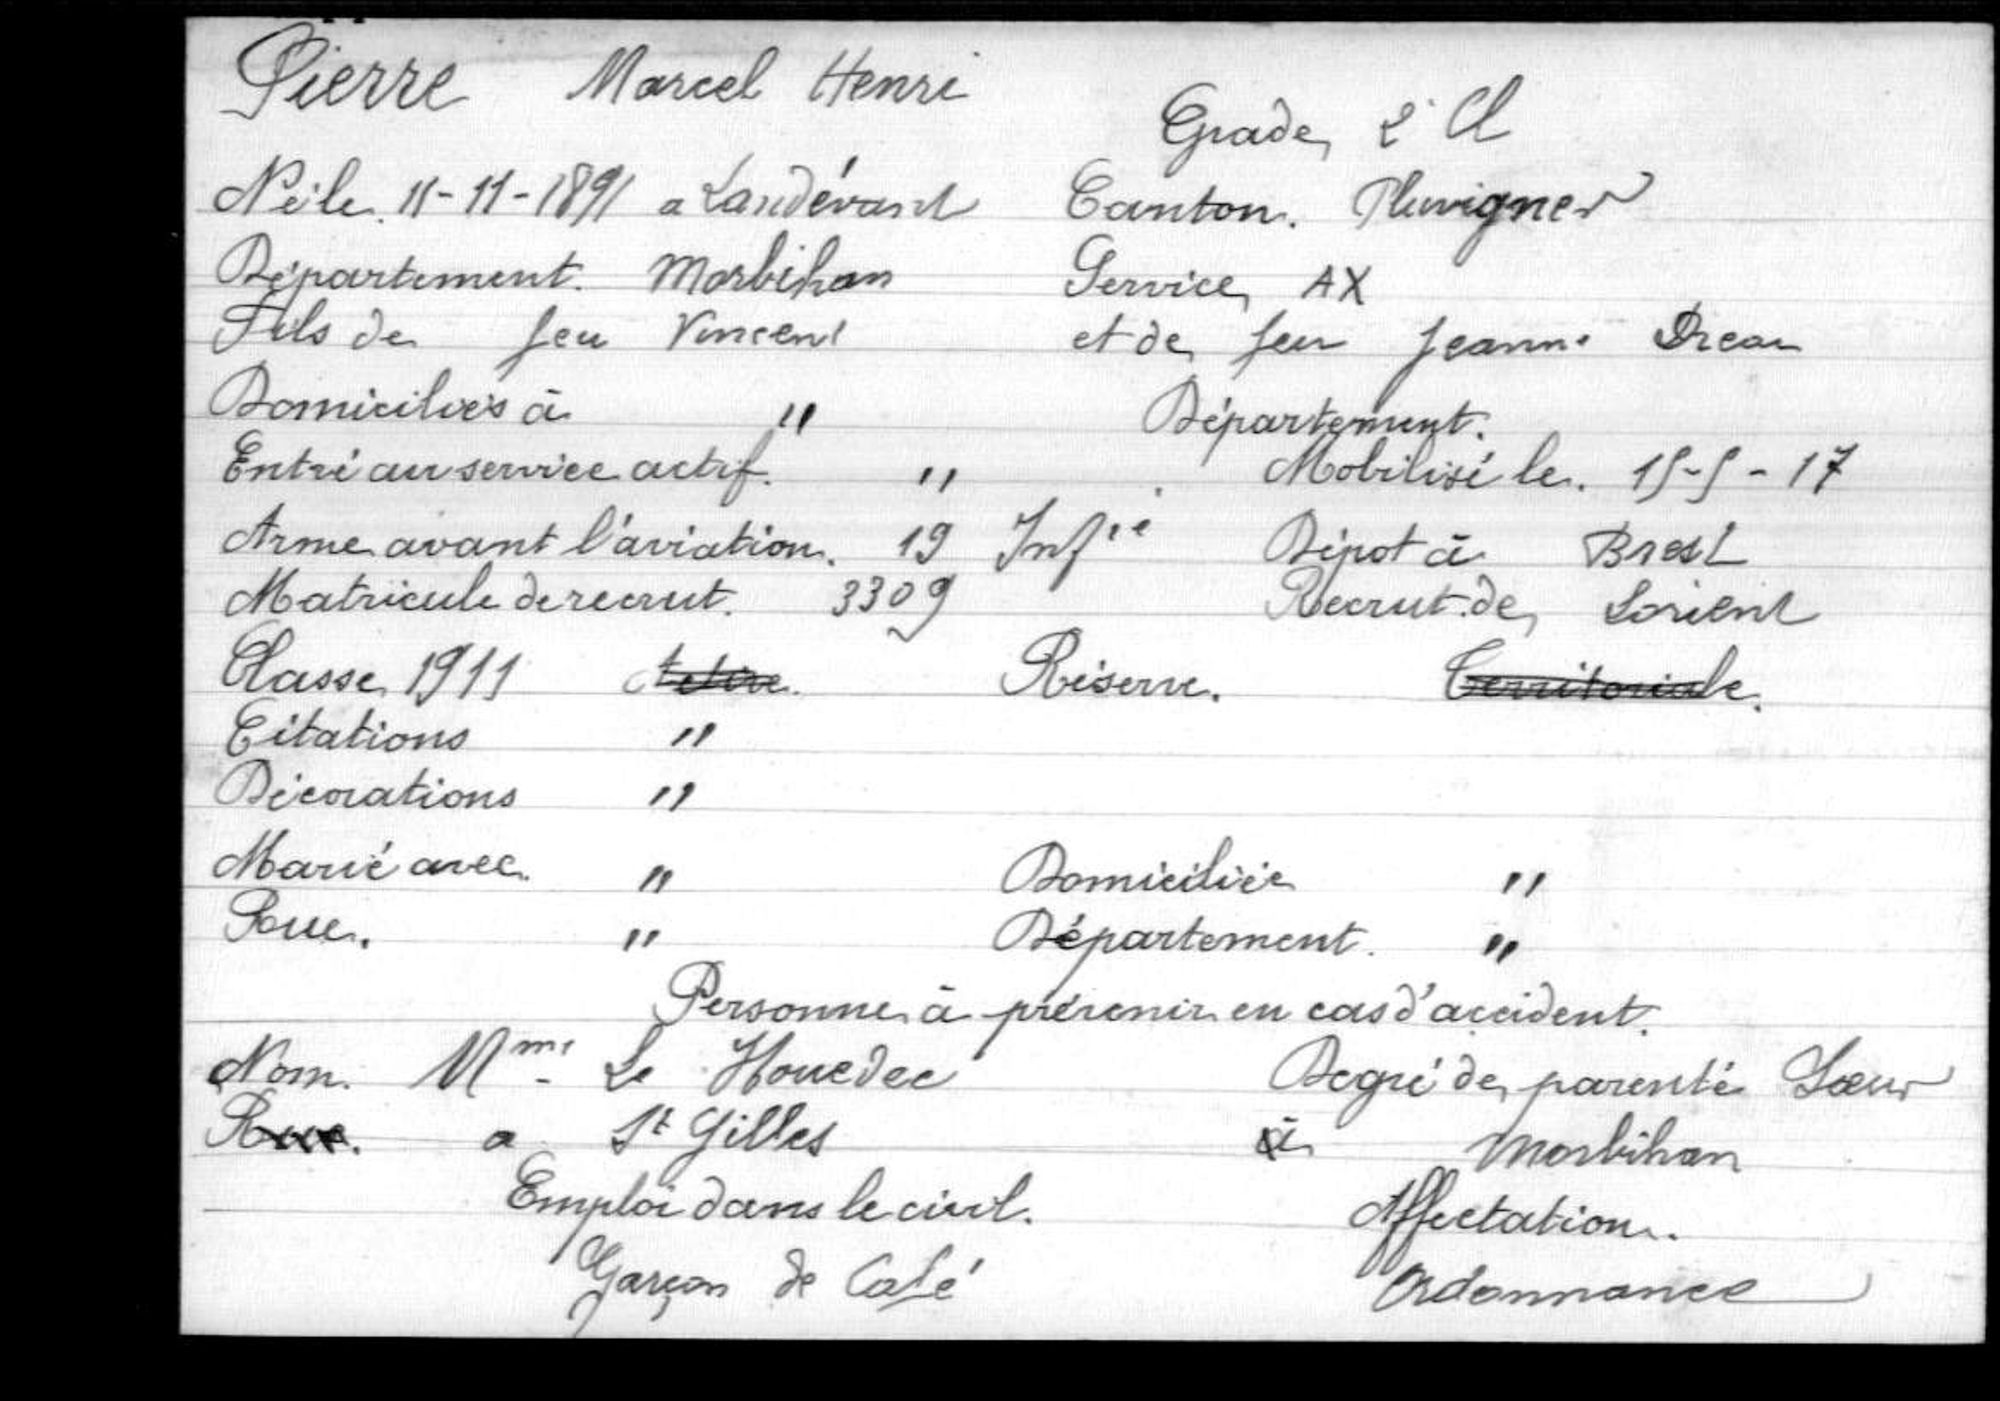 Pierre Marcel Henri
Grade, 2e Cl
Né le. 11-11-1891 a Landévant Canton. Pluvigner
Département. Morbihan Service, AX
Fils de feu Vincent et de, feu Jeanne Drean
Domiciliés à " Département.
Entré au service actif. " Mobilisé le. 15-5-17
Arme avant l'aviation. 19 Infie Dépot à Brest
Matricule de recrut. 3309 Recrut. de, Lorient
Classe, 1911 Active. Réserve. Territoriale.
Citations "
Décorations "
Marié avec. " Domiciliée "
Rue. " Département. "
Personne à prévenir en cas d'accident.
Nom. Mme Le Houedec Degré de, parenté Sœur
Rue. a St Gilles à Morbihan
Emploi dans le civil. Affectation.
Garçon de Café Ordonnance